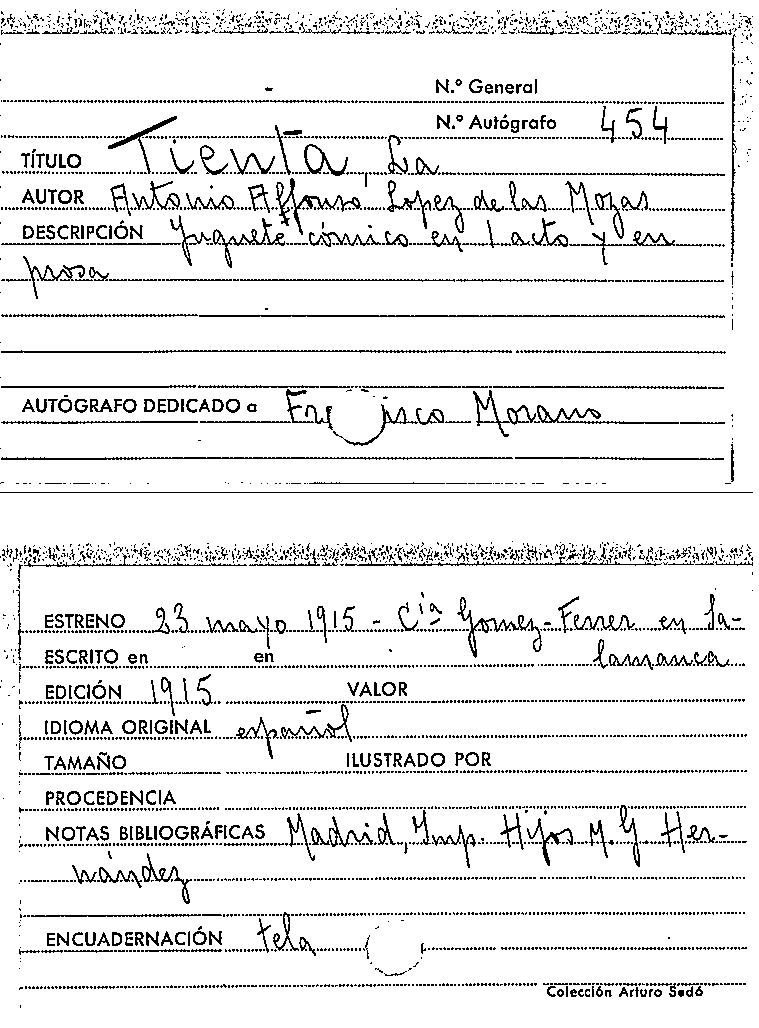 N.º General
N.º Autógrafo 454
TÍTULO Tienta, La
AUTOR Antonio Affonso Lopez de las Mozas
DESCRIPCIÓN Juguete cómico en 1 acto y en
prosa
AUTÓGRAFO DEDICADO a Fr isco Morano
ESTRENO 23 mayo 1915 - Cía Gomez-Ferrer en Sa-
ESCRITO en en lamanca
EDICIÓN 1915 VALOR
IDIOMA ORIGINAL español
TAMAÑO ILUSTRADO POR
PROCEDENCIA
NOTAS BIBLIOGRÁFICAS Madrid, Imp. Hijos M. G. Her-
nández
ENCUADERNACIÓN tela
Colección Arturo Sedó